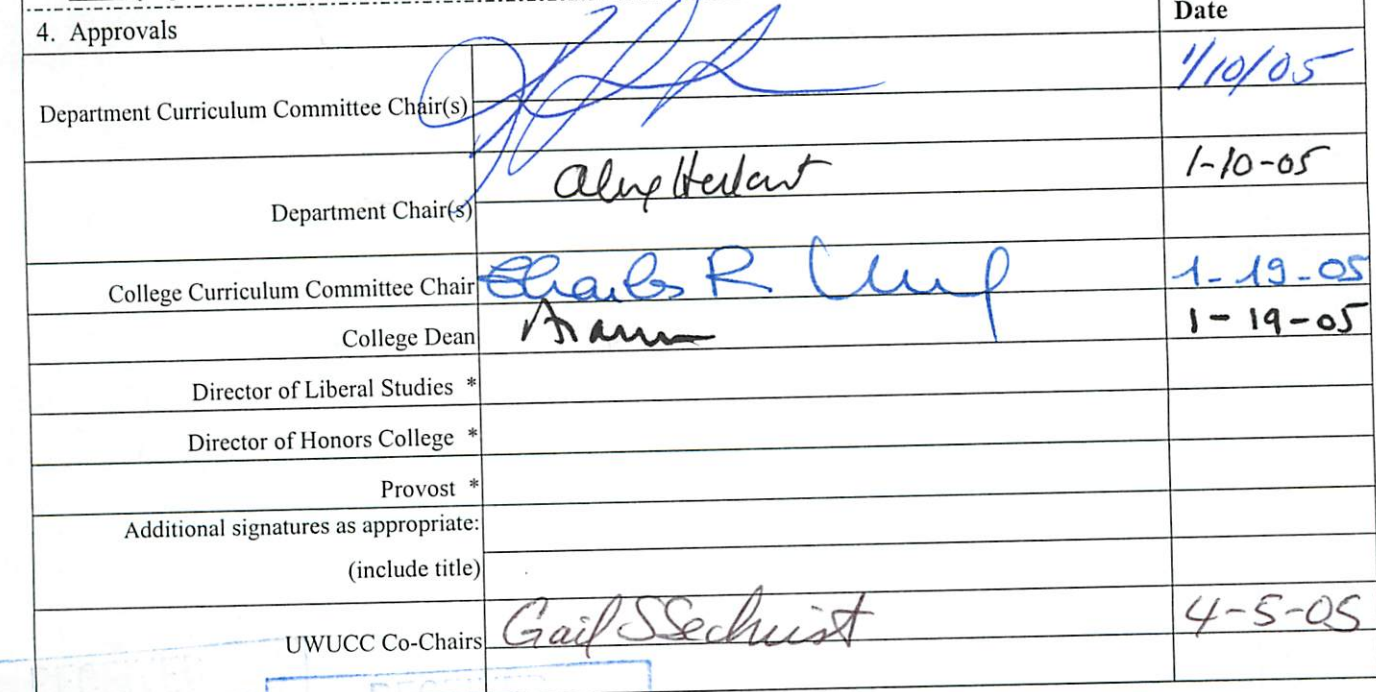 4. Approvals
Date
Department Curriculum Committee Chair(s)
1/10/05
Department Chair(s)
1-10-05
College Curriculum Committee Chair
Charles R
1-19-05
College Dean
1-19-05
Director of Liberal Studies *
Director of Honors College *
Provost *
Additional signatures as appropriate:
(include title)
UWUCC Co-Chairs
Gail S Sechrist
4-5-05